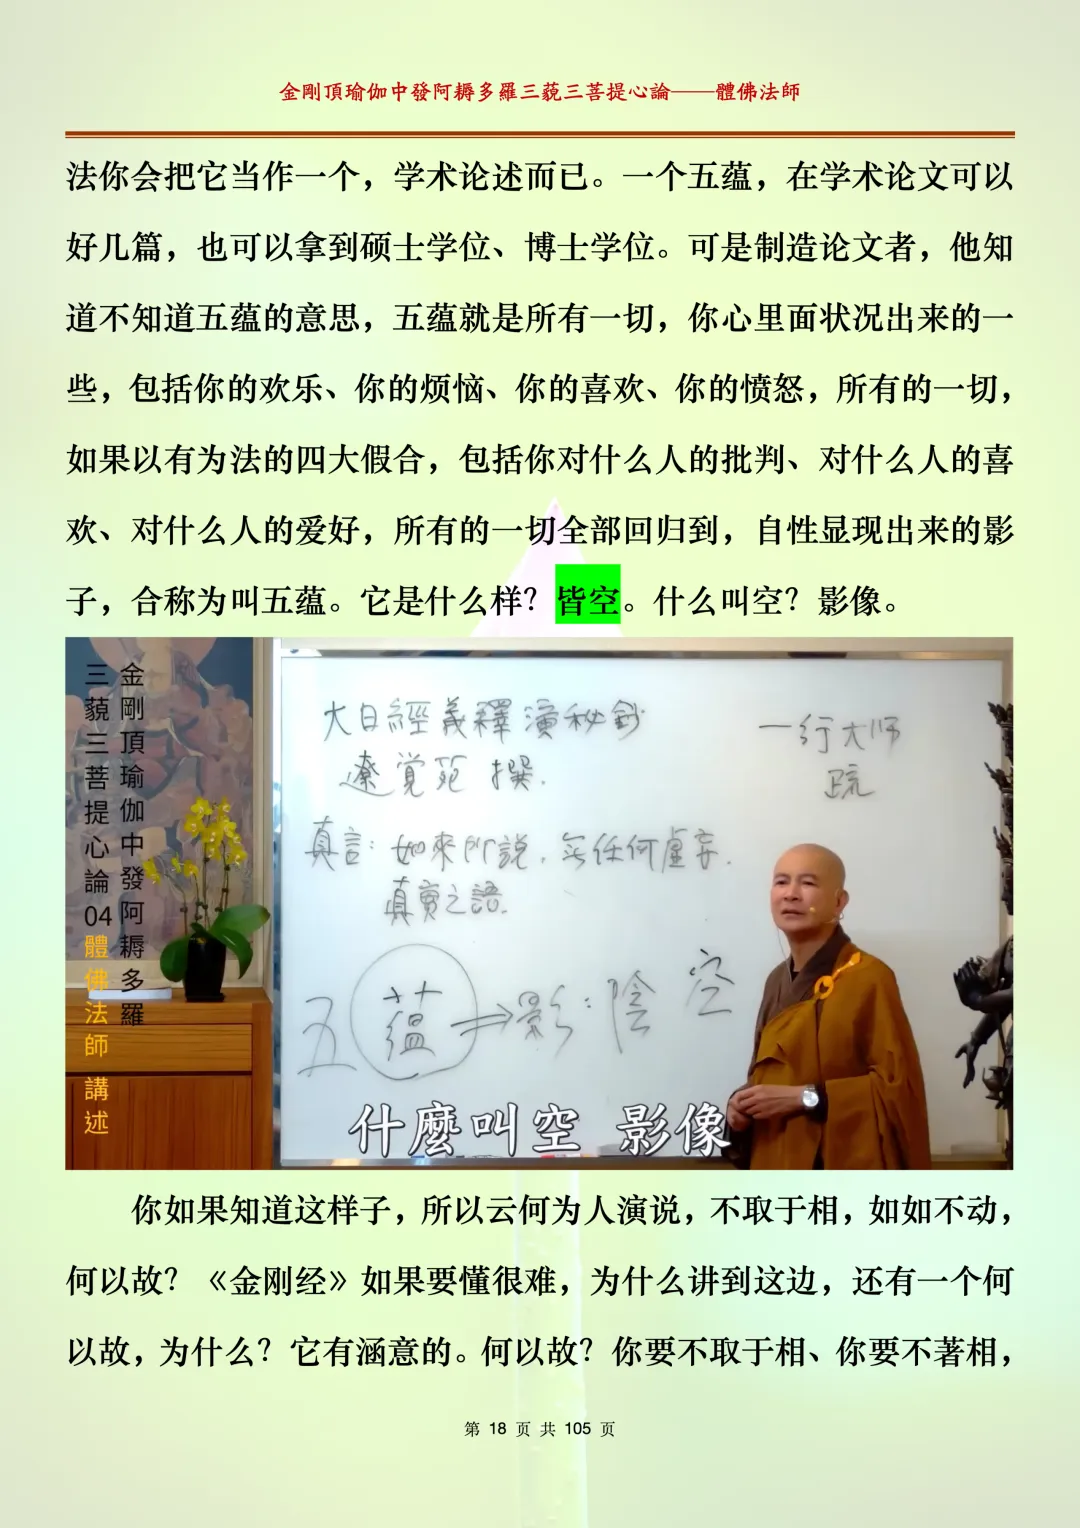 金剛頂瑜伽中發阿耨多羅三藐三菩提心論——體佛法師
法你会把它当作一个，学术论述而已。一个五蕴，在学术论文可以
好几篇，也可以拿到硕士学位、博士学位。可是制造论文者，他知
道不知道五蕴的意思，五蕴就是所有一切，你心里面状况出来的一
些，包括你的欢乐、你的烦恼、你的喜欢、你的愤怒，所有的一切，
如果以有为法的四大假合，包括你对什么人的批判、对什么人的喜
欢、对什么人的爱好，所有的一切全部回归到，自性显现出来的影
子，合称为叫五蕴。它是什么样？皆空。什么叫空？影像。
金剛頂瑜伽中發阿耨多羅
三藐三菩提心論04體佛法師 講述
大日經義釋演秘鈔
遼覺苑 撰.
一行大师
疏
真言：如來所說，无任何虛妄.
真實之語.
五蕴⇒影：陰 空
什麼叫空 影像
你如果知道这样子，所以云何为人演说，不取于相，如如不动，
何以故？《金刚经》如果要懂很难，为什么讲到这边，还有一个何
以故，为什么？它有涵意的。何以故？你要不取于相、你要不著相，
第 18 页 共 105 页